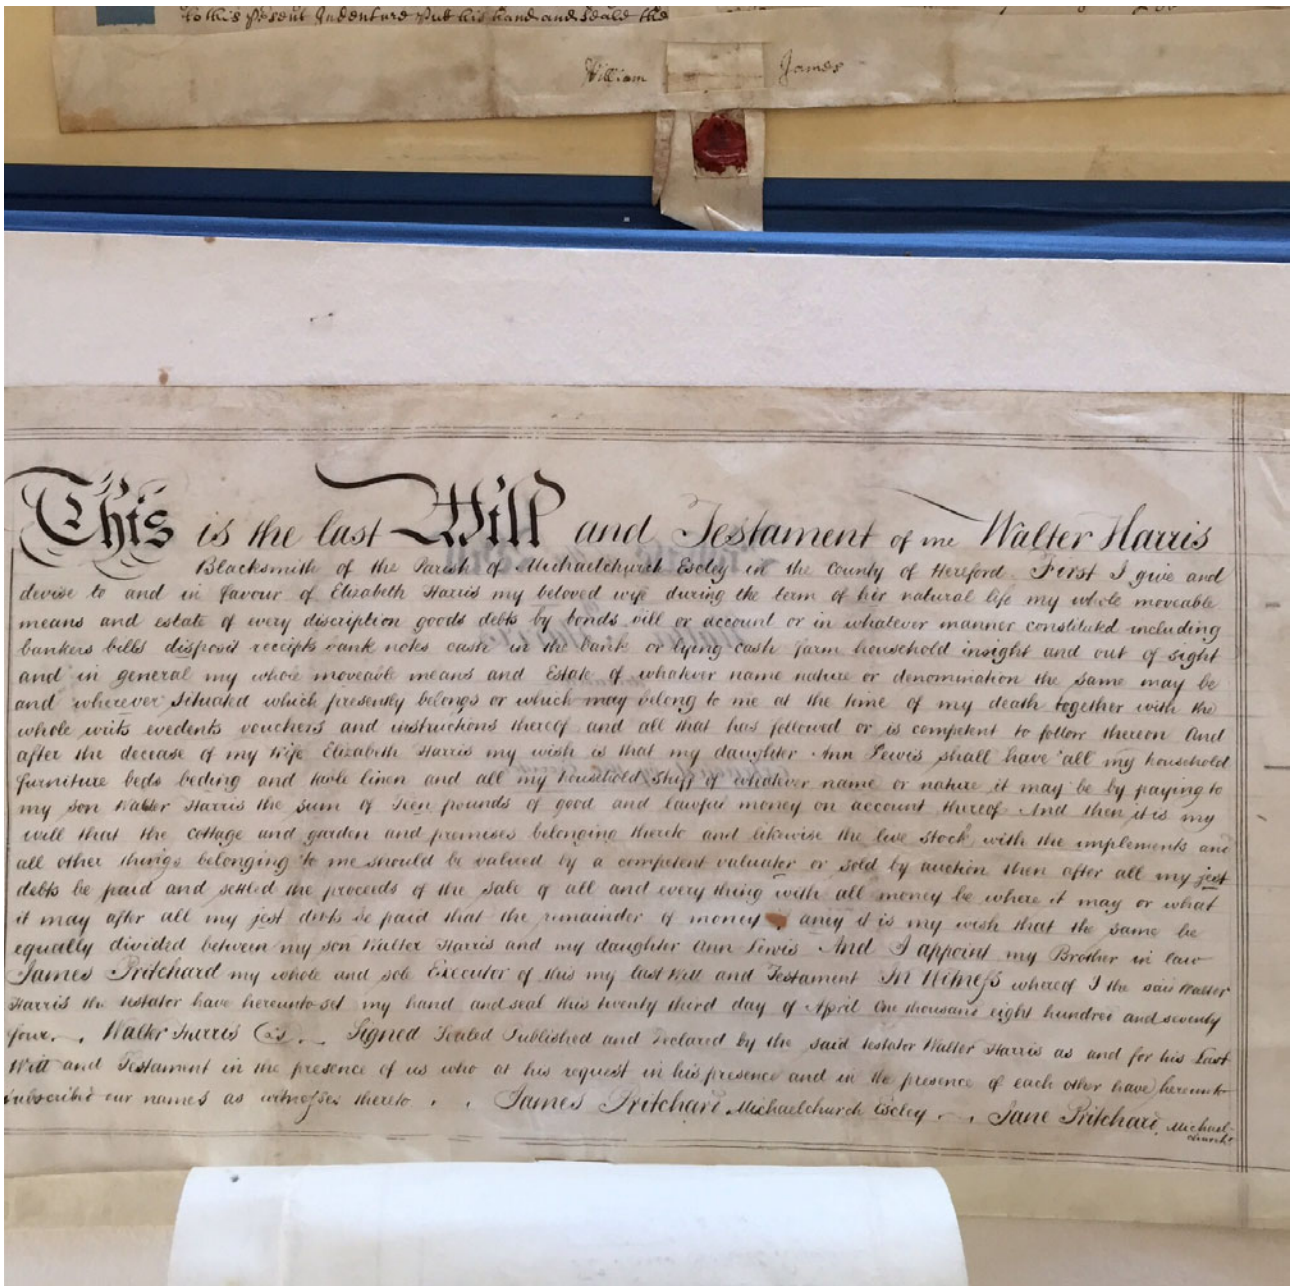 to this p'sent Indenture Put his hand and Seale the
William James
This is the last Will and Testament of me Walter Harris
Blacksmith of the Parish of Michaelchurch Escley in the County of Hereford. First I give and
devise to and in favour of Elizabeth Harris my beloved wife during the term of her natural life my whole moveable
means and estate of every discription goods debts by bonds vill or account or in whatever manner constituted including
bankers bills disposit receipts bank notes cash in the bank or lying cash farm household insight and out of sight
and in general my whole moveable means and Estate of whatever name nature or denomination the same may be
and wherever situated which presently belongs or which may belong to me at the time of my death together with the
whole writs evedents vouchers and instructions thereof and all that has followed or is competent to follow thereon And
after the decease of my wife Elizabeth Harris my wish is that my daughter Ann Lewis shall have all my household
furniture beds beding and table linen and all my household stuff of whatever name or nature it may be by paying to
my son Walter Harris the sum of Teen pounds of good and lawful money on account thereof And then it is my
will that the cottage and garden and premises belonging thereto and likewise the live stock with the implements and
all other things belonging to me should be valued by a competent valuator or sold by auction then after all my jest
debts be paid and settled the proceeds of the sale of all and every thing with all money be where it may or what
it may after all my jest debts be paid that the remainder of money aney it is my wish that the same be
equally divided between my son Walter Harris and my daughter Ann Lewis And I appoint my Brother in law
James Pritchard my whole and sole Executor of this my last Will and Testament In Witness whereof I the said Walter
Harris the testator have hereunto set my hand and seal this twenty third day of April One thousand eight hundred and seventy
four. Walter Harris Signed Sealed Published and Declared by the said testator Walter Harris as and for his Last
Will and Testament in the presence of us who at his request in his presence and in the presence of each other have hereunto
subscribed our names as witnesses thereto . . James Pritchard Michaelchurch Escley . . Jane Pritchard, Michael-
church